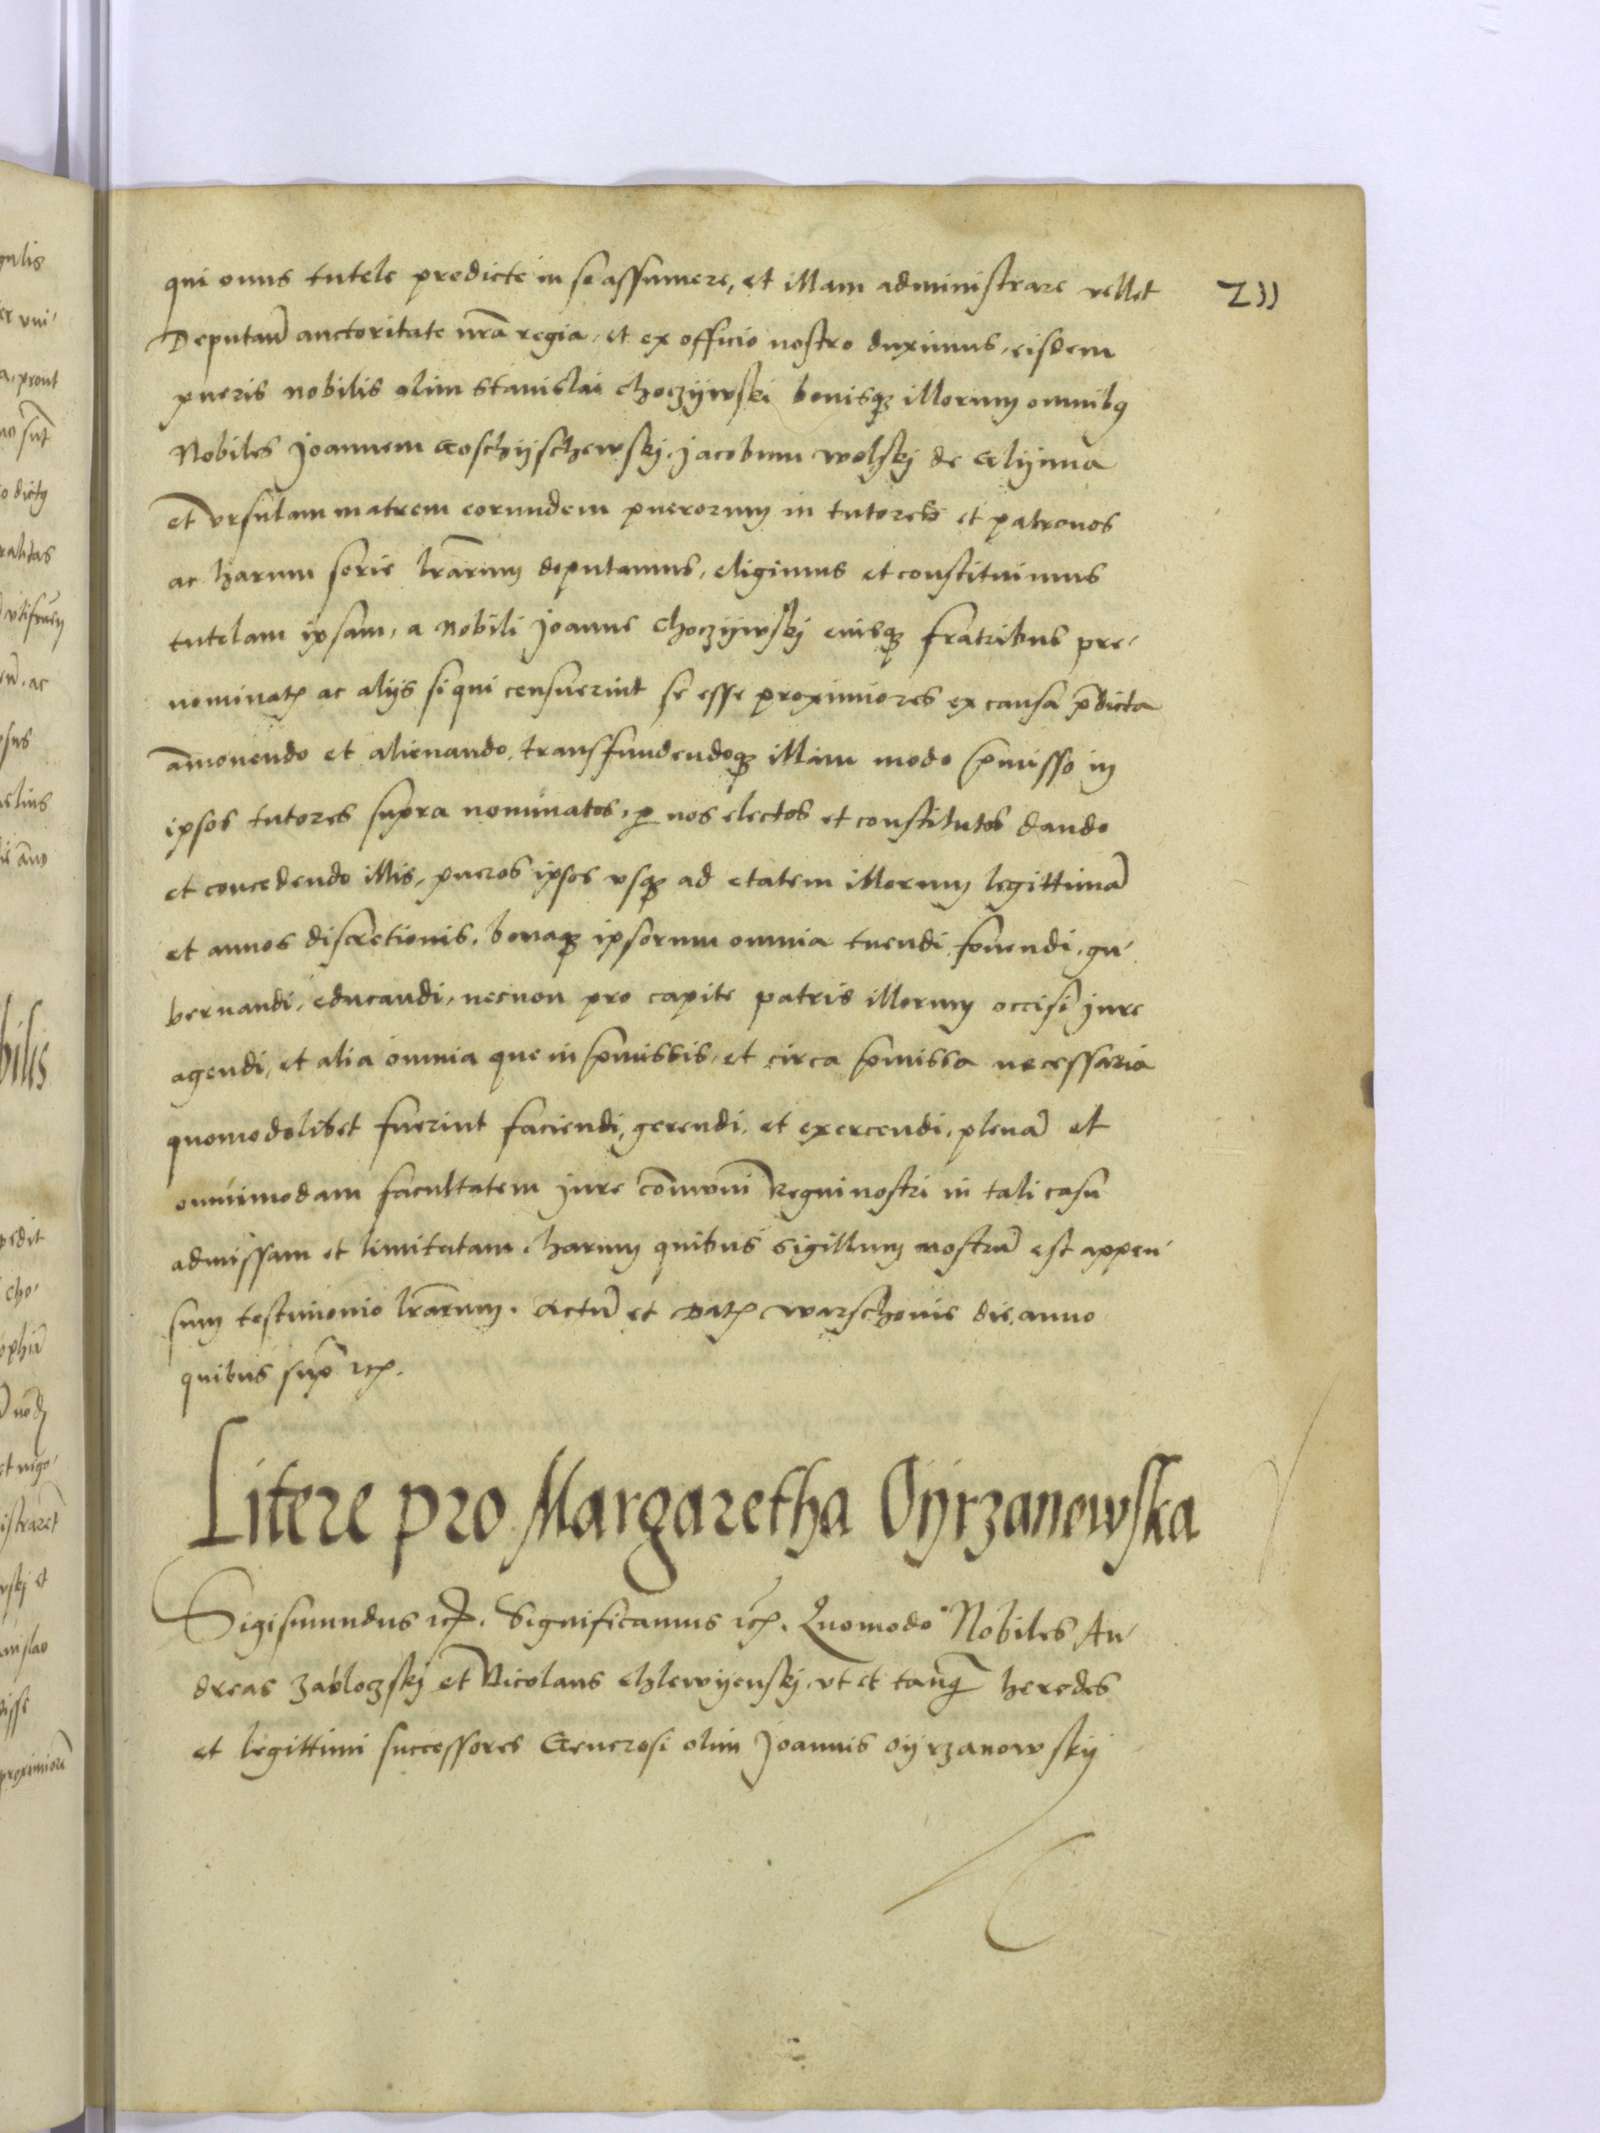 211
qui onus tutele predicte in se assumere, et illam administrare vellet
Deputanđ auctoritate nrã regia, et ex officio nostro duximus, eisdem
pueris nobilis olim Stanislai Choczijwski bonisq3 illorum omnibq
Nobiles Joannem Goschijschewskj, Jacobum Wolskj de Glijnna
et Ursulam matrem eorundem puerorum in tutores et patronos
ac harum serie lrãrum deputamus, eligimus et constituimus
tutelam ipsam, a Nobili Joanne Choczijwskj eiusq3 fratribus pre-
nominatꝭ ac alijs siqui censuerint se esse proximiores ex causa p̃dicta
am̃ouendo et alienando, transfundendoq3 illam modo p̃misso in
ipsos tutores supra nominatos, ꝑ nos electos et constitutos dando
et concedendo illis, pueros ipsos vsq3 ad etatem illorum legittimã
et annos discretionis, bonaq3 ipsorum omnia tuendi, fouendi, gu-
bernandi, educandi, necnon pro capite patris illorum occisi jure
agendi, et alia omnia que in p̃missis, et circa p̃missa necessaria
quomodolibet fuerint faciendi, gerendi, et exercendi, plenã et
omnimodam facultatem jure com̃uni Regni nostri in tali casu
admissam et limitatam, harum quibus sigillum nostrũ est appen-
sum testimonio lrãrum. Actũ et Datꝭ Warschouie die, anno
quibus sup̃ ꝛcꝭ.
Litere pro Margaretha Oÿrzanowska
Sigismundus ꝛcꝭ. Significamus ꝛcꝭ. Quomodo Nobiles An-
dreas Zabloczskj et Nicolaus Chlewijenskj, vt et tanq̃ heredes
et legittimi successores Generosi olim Joannis Oijrzanowskij